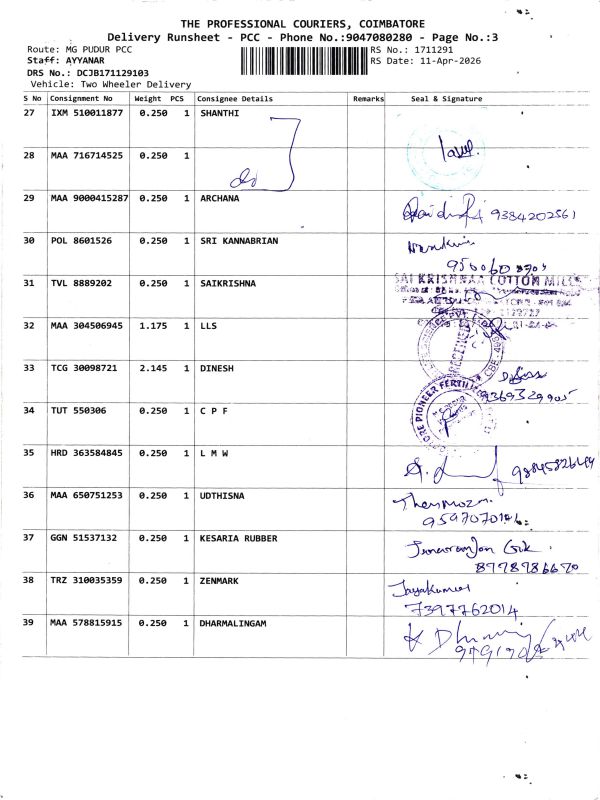 THE PROFESSIONAL COURIERS, COIMBATORE
Delivery Runsheet - PCC - Phone No.:9047080280 - Page No.:3
Route: MG PUDUR PCC RS No.: 1711291
Staff: AYYANAR RS Date: 11-Apr-2026
DRS No.: DCJB171129103
Vehicle: Two Wheeler Delivery
S No Consignment No Weight PCS Consignee Details Remarks Seal & Signature
27 IXM 510011877 0.250 1 SHANTHI
28 MAA 716714525 0.250 1
29 MAA 9000415287 0.250 1 ARCHANA 9384202561
30 POL 8601526 0.250 1 SRI KANNABRIAN
31 TVL 8889202 0.250 1 SAIKRISHNA
SAI KRISHNAA COTTON MILLS
32 MAA 304506945 1.175 1 LLS
33 TCG 30098721 2.145 1 DINESH
34 TUT 550306 0.250 1 C P F
PIONEER FERTILI
35 HRD 363584845 0.250 1 L M W
36 MAA 650751253 0.250 1 UDTHISNA
37 GGN 51537132 0.250 1 KESARIA RUBBER
8778786670
38 TRZ 310035359 0.250 1 ZENMARK Jayakumar
7397762014
39 MAA 578815915 0.250 1 DHARMALINGAM